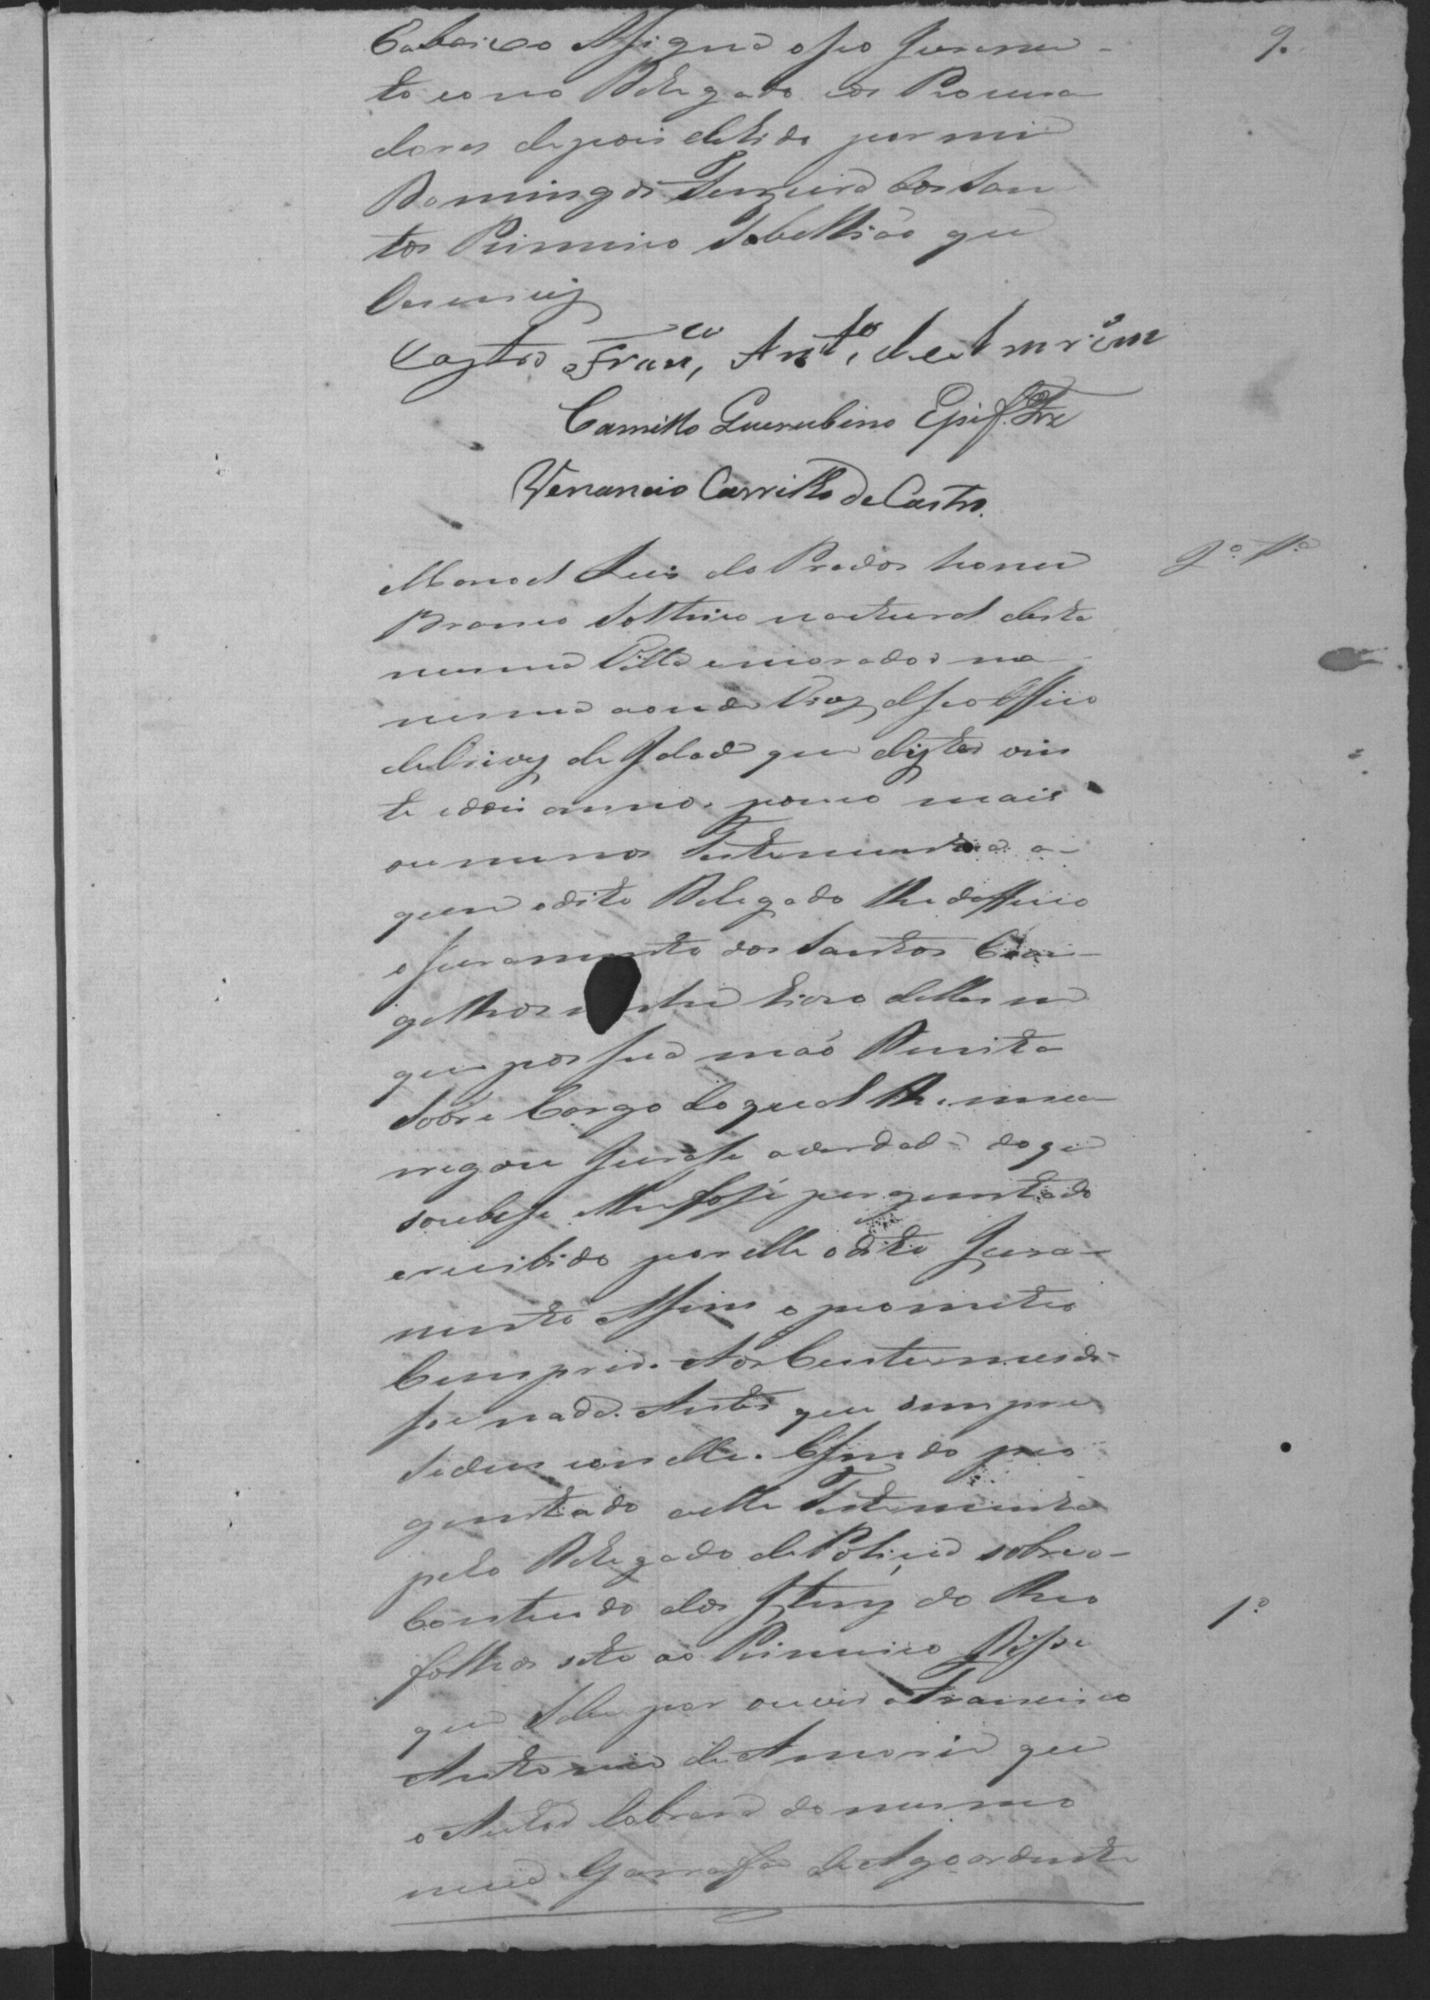 9.
Cabaixo Asigna o seo Jurame-
to como Delegado eos Procura
dores depois de lido por mi
Domingos Ferreira dos San
tos Primeiro Tabellião que
Escrevij
Castro Franco, Anto, de Amorim
Camillo Querubino Epif.
Venancio Carrilho de Castro.
2.a Ta
Manoel Luis do Prados homem
Branco Solteiro natural desta
mesma Villa e morador na
mesma aonde Vive de seo Officio
de de Idade que dice ter vin
te e dois annos pouco mais
ou menos Testemunha a
quem o dito Delegado lhe defferio
o Juramento dos Santos Evan-
gelhos livro delles em
que pos sua mão Direita
Sobre Cargo do qual lhe emca
rregou Jurase a verdade do que
soubese e lhe fose perguntado
e recibido por elle o dito Jura-
mento Asim o prometeo
Cumprir. Aos Custumes dis-
se nada. Antes que
e Sendo per
guntado a elle Testemunha
pelo Delegado de Policia sobre o-
Conteudo dos Itenz do Reo
1.o
folhas sete ao Primeiro Disse
que Sabe por ouvir a Francisco
Antonio de Amorim que
o Autor Cobrara do mesmo
meia Garrafa de Agoardente